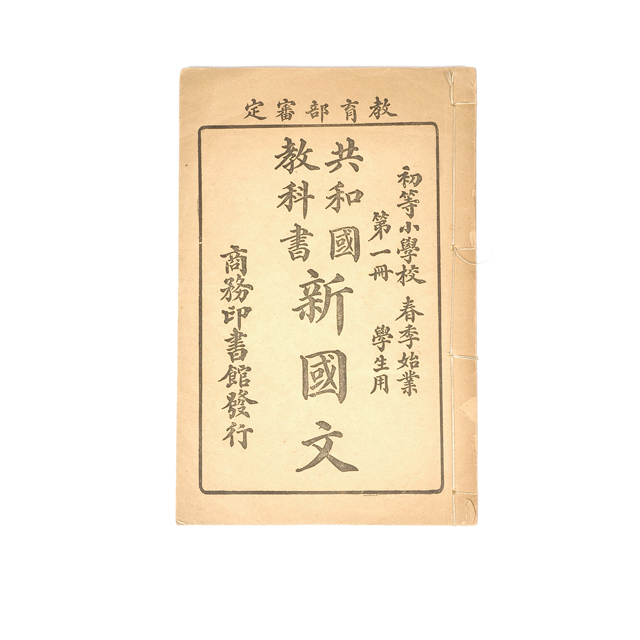 教育部審定
初等小學校 春季始業
第一冊 學生用
共和國
教科書
新國文
商務印書館發行